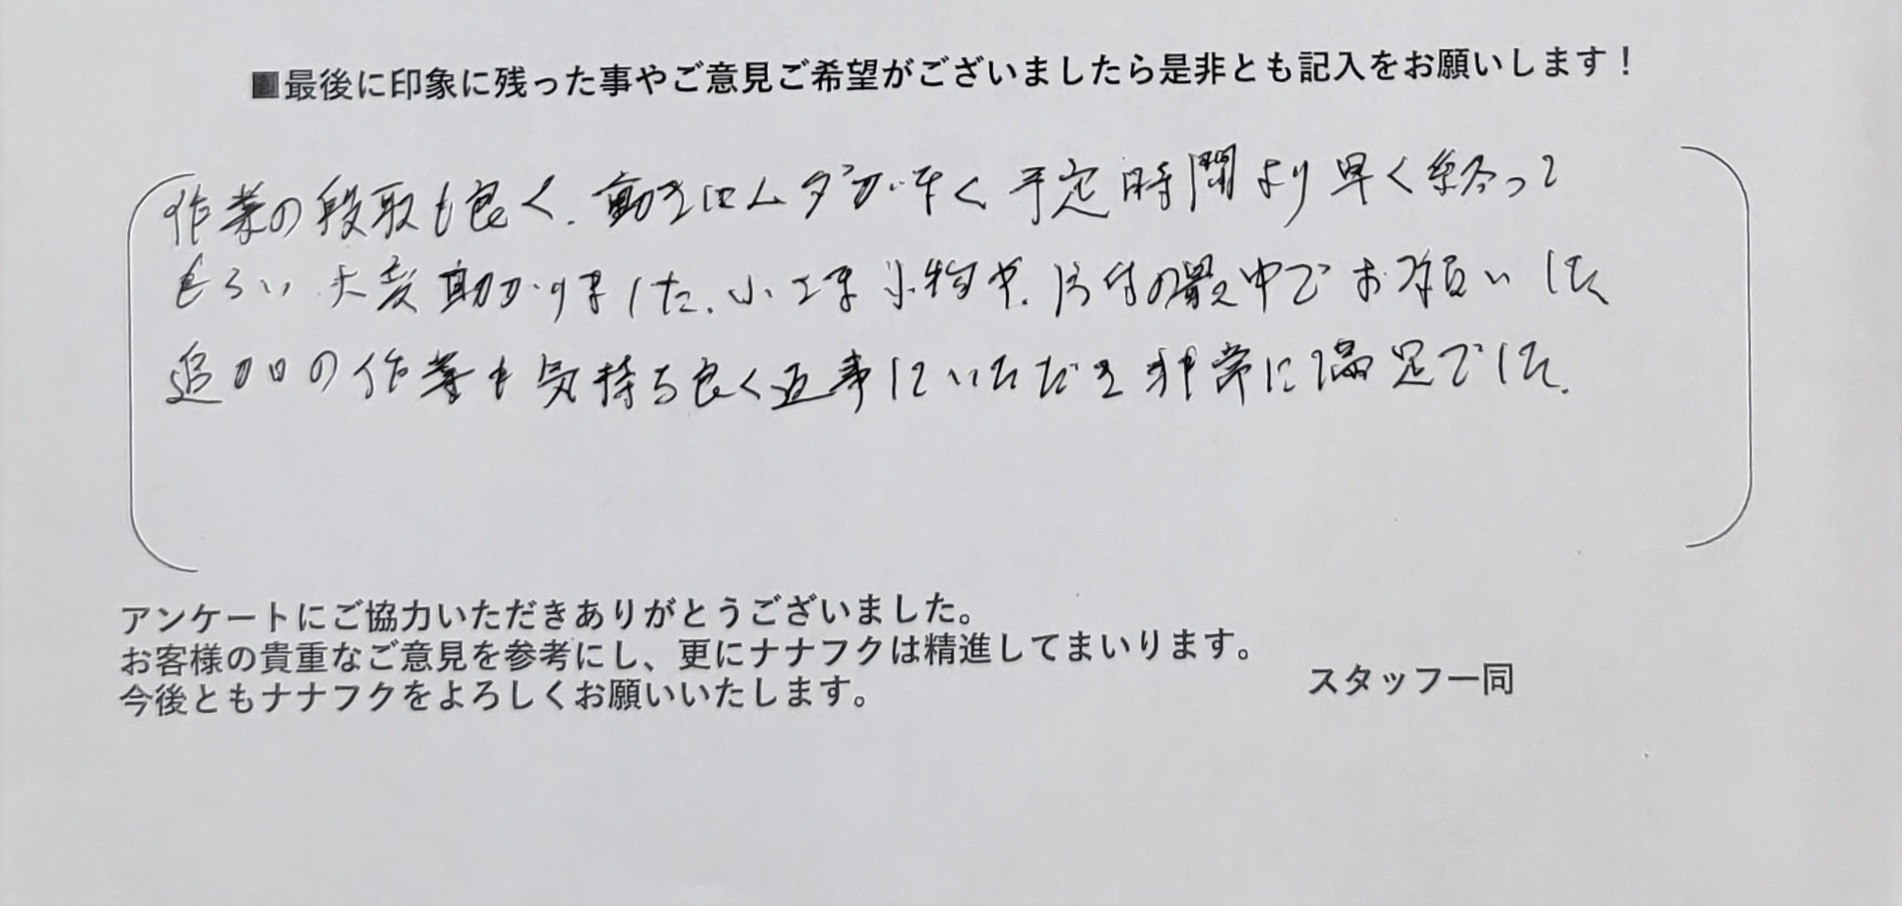 ■最後に印象に残った事やご意見ご希望がございましたら是非とも記入をお願いします！
作業の段取も良く、動きにムダがなく予定時間より早く終って
もらい大変助かりました。小物や、片付の最中でお願いした
追加の作業も気持ち良く返事していただき非常に満足でした。
アンケートにご協力いただきありがとうございました。
お客様の貴重なご意見を参考にし、更にナナフクは精進してまいります。
今後ともナナフクをよろしくお願いいたします。
スタッフ一同